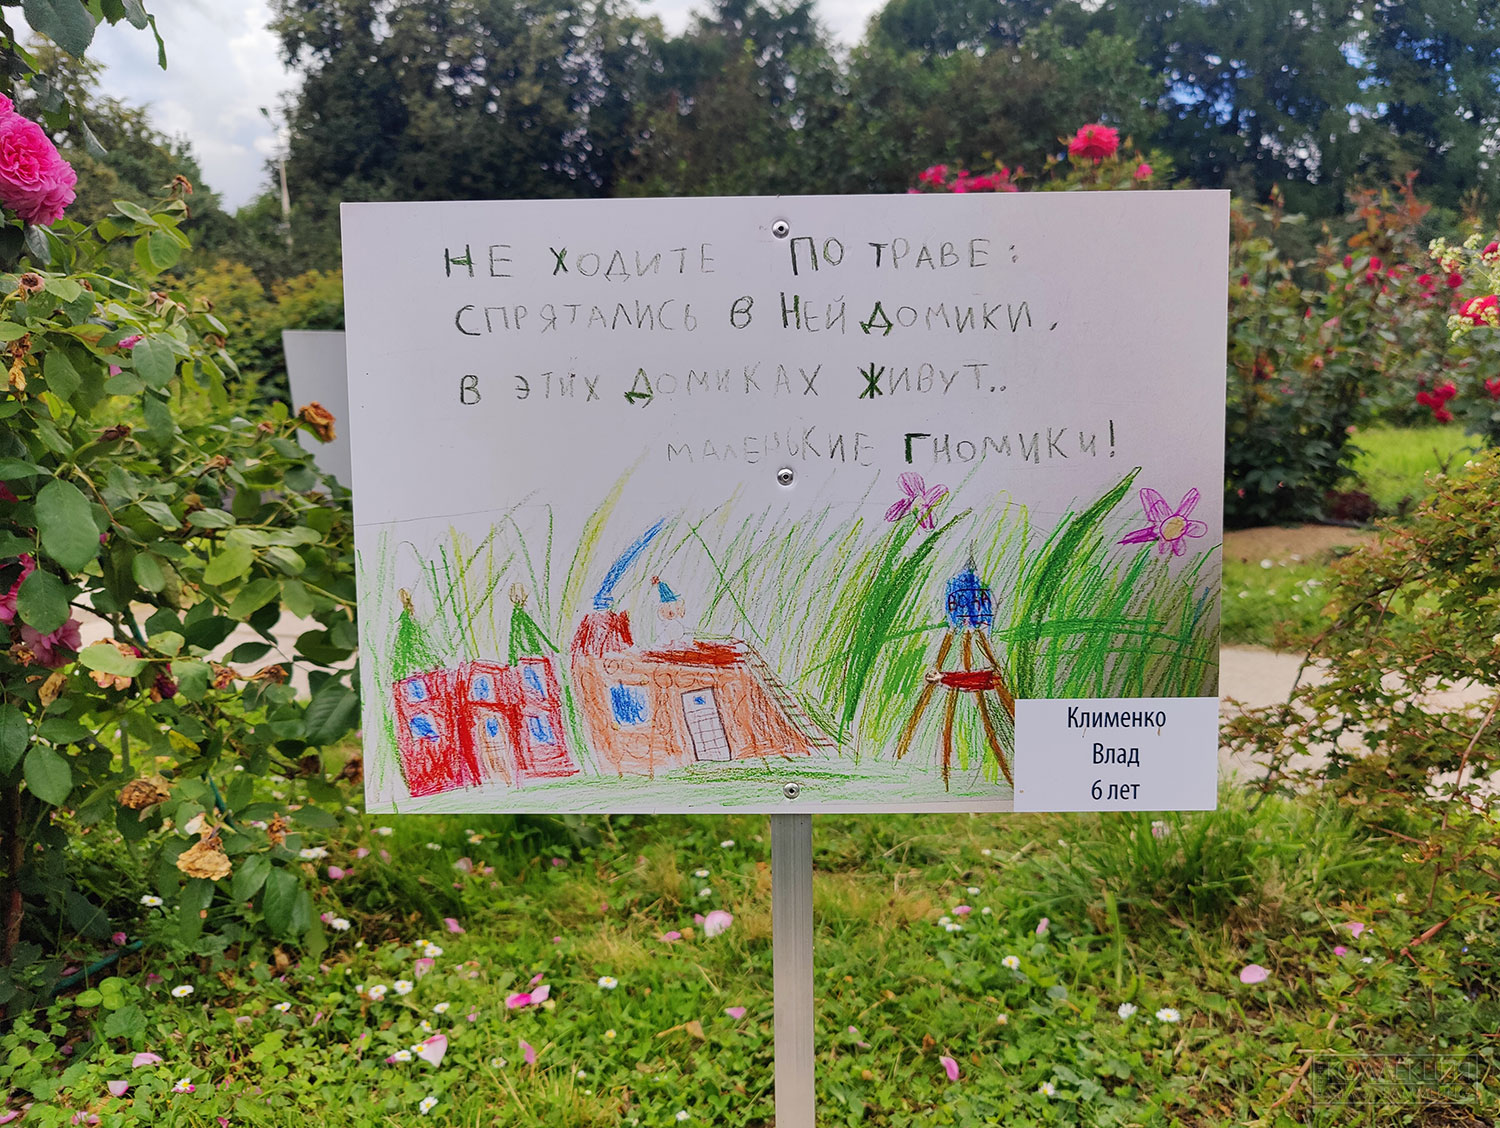 НЕ ХОДИТЕ ПО ТРАВЕ:
СПРЯТАЛИСЬ В НЕЙ ДОМИКИ.
В ЭТИХ ДОМИКАХ ЖИВУТ..
МАЛЕНЬКИЕ ГНОМИКИ!
Клименко
Влад
6 лет